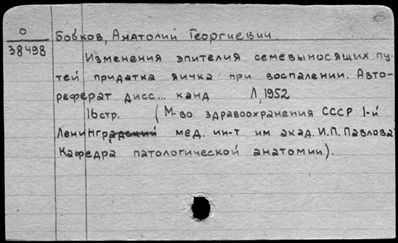 О
38498
Бобков, Анатолий Георгиевич.
Изменения эпителия семевыносящих пу-
тей придатка яичка при воспалении. Авто-
реферат дисс... канд Л, 1952
16стр. (М-во здравоохранения СССР 1-й
Ленинградский мед. ин-т им акад. И.П. Павлова
Кафедра патологической анатомии).